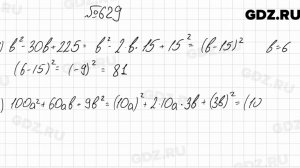 №629
GDZ.RU
) b² - 30b + 225 = b² - 2·b·15 + 15² = (b - 15)² b = 6
(b - 15)² = (-9)² = 81
) 100a² + 60ab + 9b² = (10a)² + 2·10a·3b + (3b)² = (10